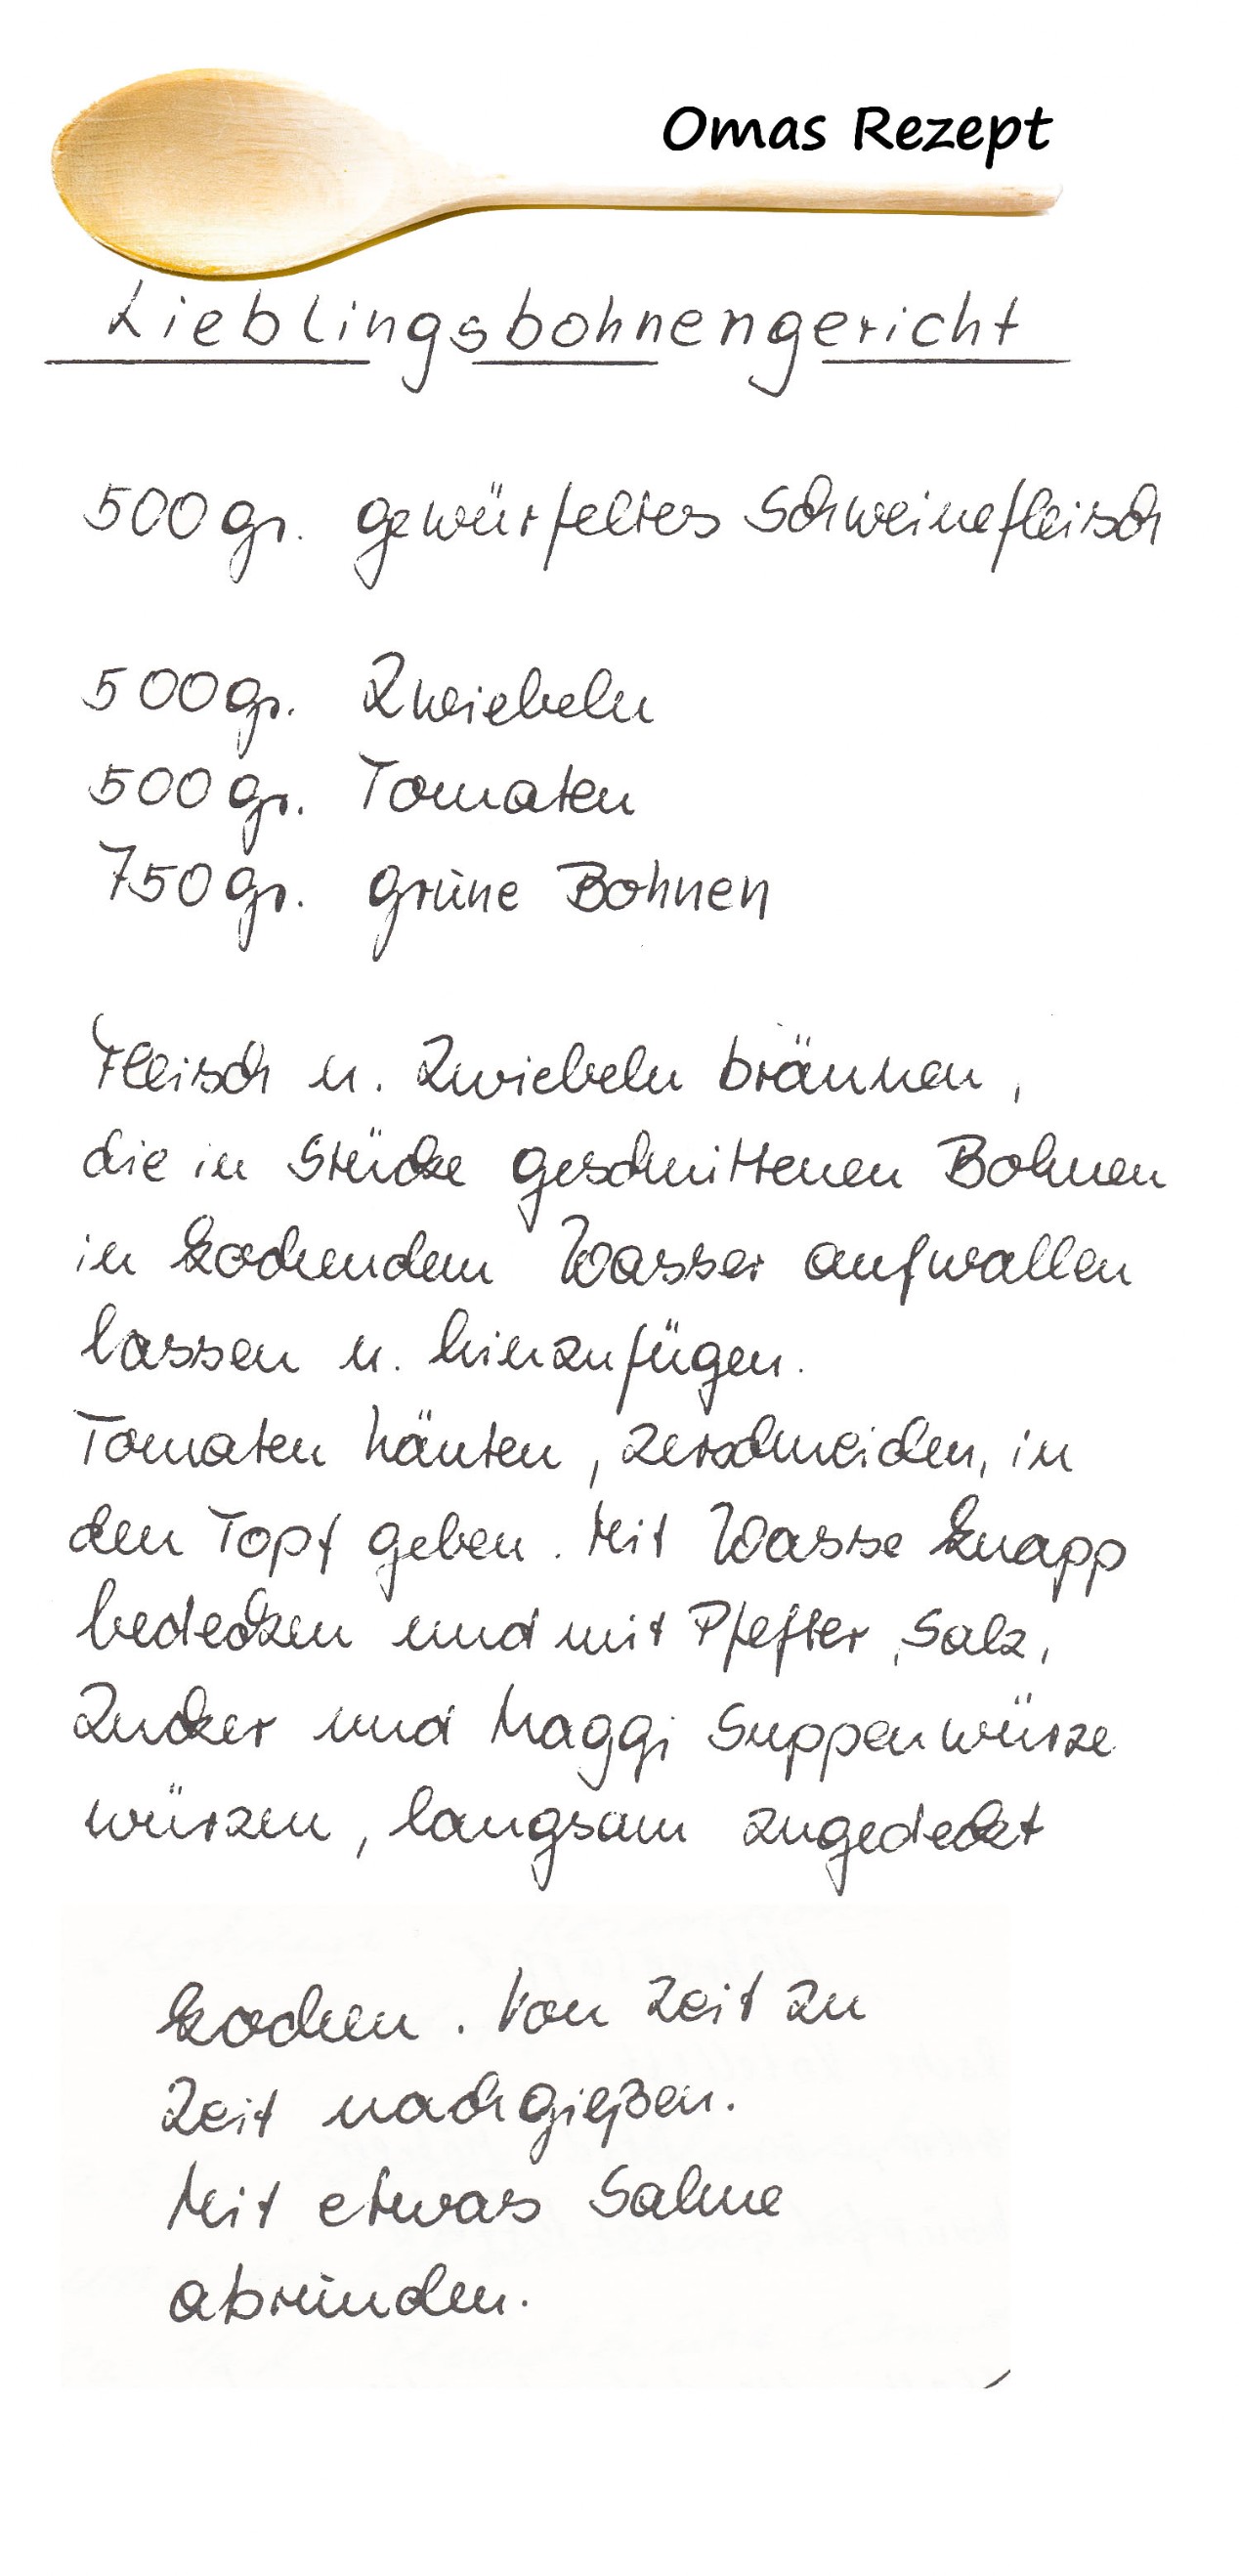 Omas Rezept
Lieblingsbohnengericht
500 gr. gewürfeltes Schweinefleisch
500 gr. Zwiebeln
500 gr. Tomaten
750 gr. grüne Bohnen
Fleisch u. Zwiebeln bräunen,
die in Stücke geschnittenen Bohnen
in kochendem Wasser aufwallen
lassen u. hinzufügen.
Tomaten häuten, zerschneiden, in
den Topf geben. Mit Wasse knapp
bedecken und mit Pfeffer, Salz,
Zucker und Maggi Suppenwürze
würzen, langsam zugedeckt
kochen. Von Zeit zu
Zeit nachgießen.
Mit etwas Sahne
abrunden.